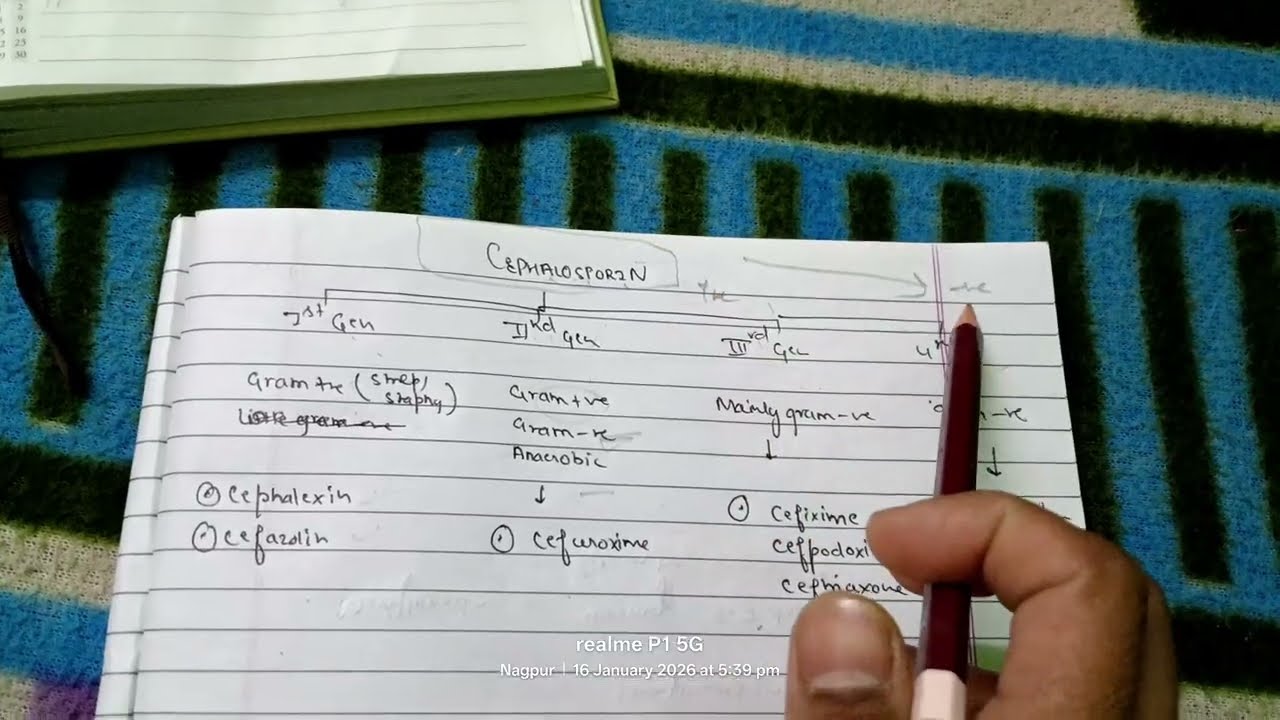 2
9
5 16
2 23
9 30
CEPHALOSPORIN
+ve -ve
Ist Gen IInd Gen IIIrd Gen 4th
Gram +ve (strep, staphy) Gram +ve Mainly gram -ve -ve
Gram -ve
Anaerobic
Cephalexin Cefixime
Cefazolin Cefuroxime Cefpodoxi
Ceftriaxone
realme P1 5G
Nagpur | 16 January 2026 at 5:39 pm